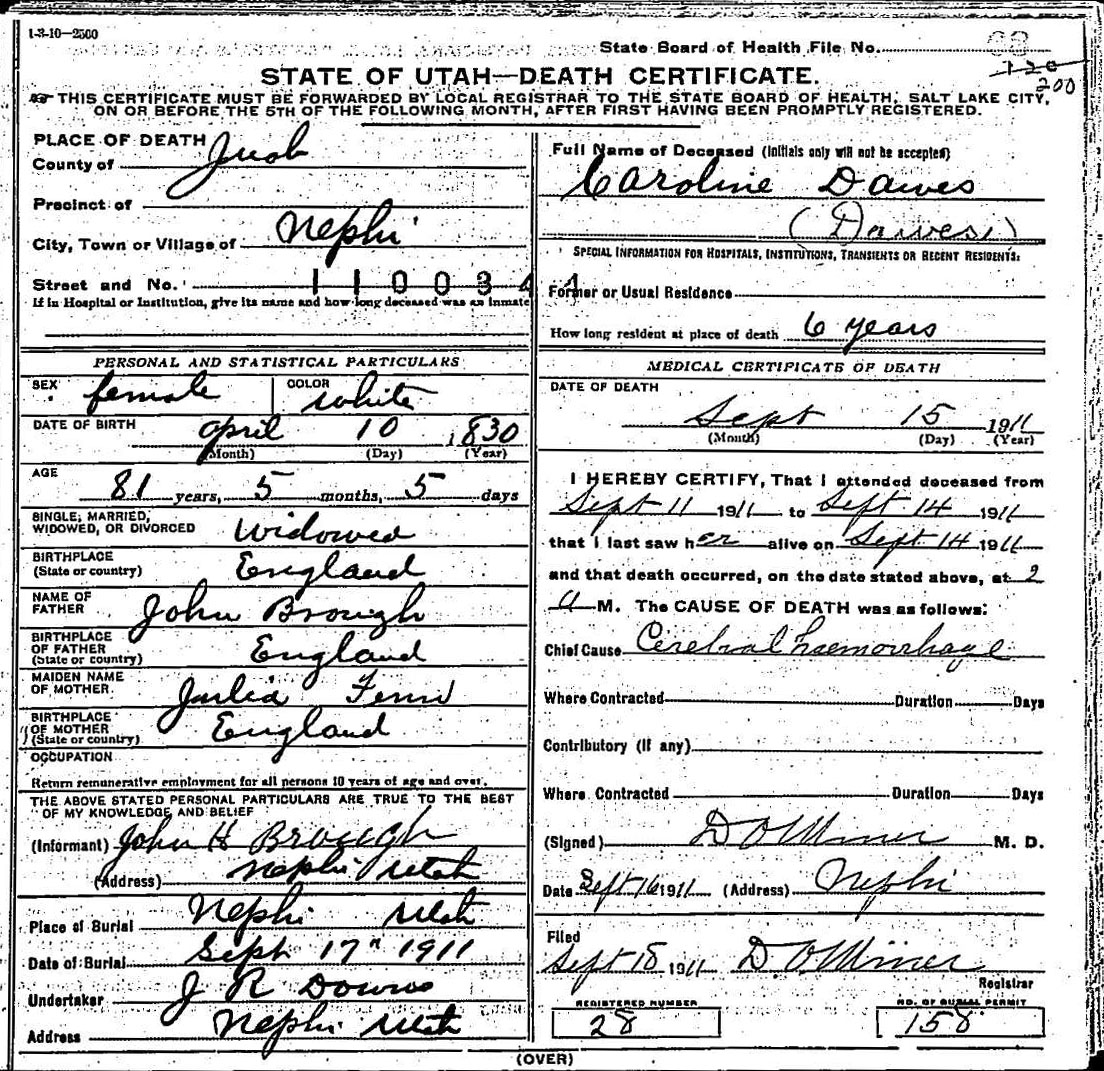 1-3-10-2500
State Board of Health File No.
120
200
STATE OF UTAH—DEATH CERTIFICATE.
THIS CERTIFICATE MUST BE FORWARDED BY LOCAL REGISTRAR TO THE STATE BOARD OF HEALTH, SALT LAKE CITY,
ON OR BEFORE THE 5TH OF THE FOLLOWING MONTH, AFTER FIRST HAVING BEEN PROMPTLY REGISTERED.
PLACE OF DEATH
County of Juab
Precinct of
City, Town or Village of Nephi
Street and No. 1100344
If in Hospital or Institution, give its name and how long deceased was an inmate
PERSONAL AND STATISTICAL PARTICULARS
SEX female COLOR white
DATE OF BIRTH april 10 1830
(Month) (Day) (Year)
AGE 81 years, 5 months, 5 days
SINGLE, MARRIED,
WIDOWED, OR DIVORCED Widowed
BIRTHPLACE
(State or country) England
NAME OF
FATHER John Brough
BIRTHPLACE
OF FATHER
(State or country) England
MAIDEN NAME
OF MOTHER Julia
BIRTHPLACE
OF MOTHER
(State or country) England
OCCUPATION
Return remunerative employment for all persons 10 years of age and over.
THE ABOVE STATED PERSONAL PARTICULARS ARE TRUE TO THE BEST
OF MY KNOWLEDGE AND BELIEF
(Informant) John H Brough
(Address) Nephi Utah
Place of Burial Nephi Utah
Date of Burial Sept 17" 1911
Undertaker J R Downs
Address Nephi Utah
Full Name of Deceased (Initials only will not be accepted)
Caroline Dawes
(Dawes)
SPECIAL INFORMATION FOR HOSPITALS, INSTITUTIONS, TRANSIENTS OR RECENT RESIDENTS:
Former or Usual Residence
How long resident at place of death 6 years
MEDICAL CERTIFICATE OF DEATH
DATE OF DEATH
Sept 15 1911
(Month) (Day) (Year)
I HEREBY CERTIFY, That I attended deceased from
Sept 11 1911 to Sept 14 1911
that I last saw her alive on Sept 14 1911
and that death occurred, on the date stated above, at 2
a M. The CAUSE OF DEATH was as follows:
Chief Cause Cerebral haemorrhage
Where Contracted Duration Days
Contributory (if any)
Where Contracted Duration Days
(Signed) D O Miner M. D.
Date Sept 16 1911 (Address) Nephi
Filed
Sept 18 1911 D. O. Miner
Registrar
REGISTERED NUMBER
28
NO. OF BURIAL PERMIT
158
(OVER)